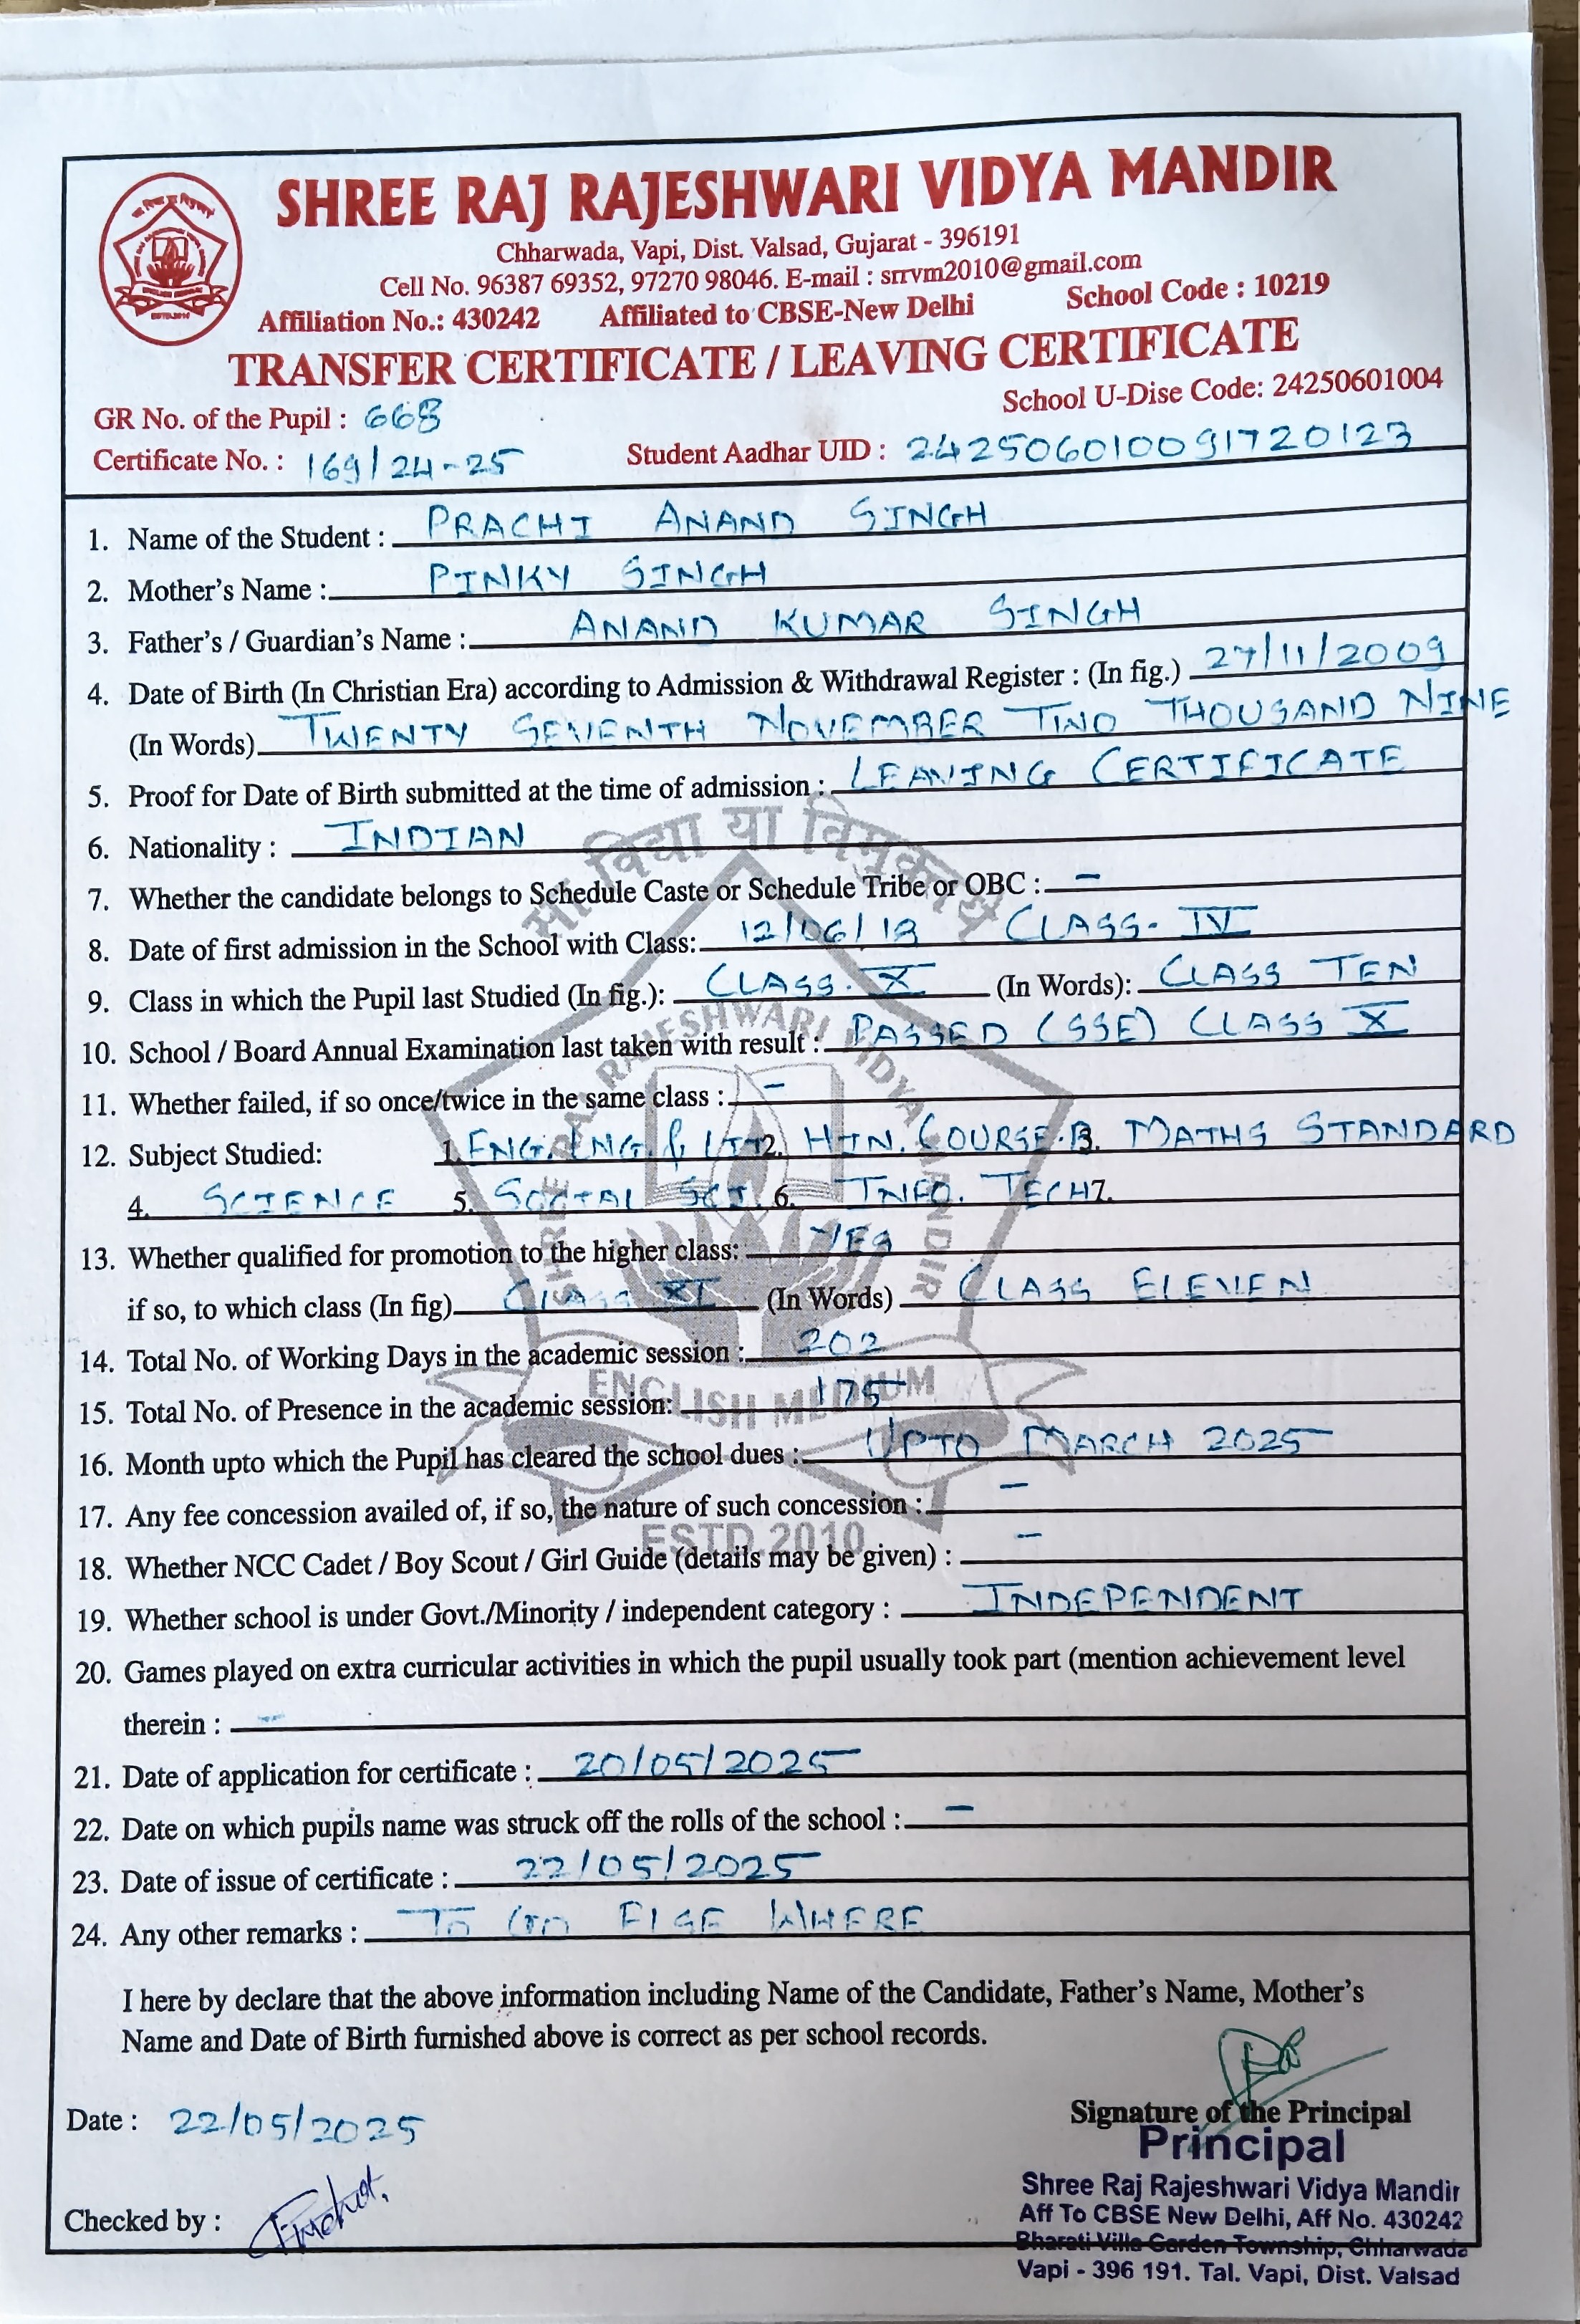 SHREE RAJ RAJESHWARI VIDYA MANDIR
Chharwada, Vapi, Dist. Valsad, Gujarat - 396191
Cell No. 96387 69352, 97270 98046. E-mail : srrvm2010@gmail.com
Affiliation No.: 430242 Affiliated to CBSE-New Delhi School Code : 10219
TRANSFER CERTIFICATE / LEAVING CERTIFICATE
School U-Dise Code: 24250601004
GR No. of the Pupil : 668
Certificate No. : 169/24-25 Student Aadhar UID : 242506010091720123
1. Name of the Student : PRACHI ANAND SINGH
2. Mother's Name : PINKY SINGH
3. Father's / Guardian's Name : ANAND KUMAR SINGH
4. Date of Birth (In Christian Era) according to Admission & Withdrawal Register : (In fig.) 27/11/2009
(In Words) TWENTY SEVENTH NOVEMBER TWO THOUSAND NINE
5. Proof for Date of Birth submitted at the time of admission : LEAVING CERTIFICATE
6. Nationality : INDIAN
सा विद्या या विमुक्तये
7. Whether the candidate belongs to Schedule Caste or Schedule Tribe or OBC : –
8. Date of first admission in the School with Class: 12/06/18 CLASS- IV
9. Class in which the Pupil last Studied (In fig.): CLASS. X (In Words): CLASS TEN
SHREE RAJ RAJESHWARI VIDYA MANDIR
10. School / Board Annual Examination last taken with result : PASSED (SSE) CLASS X
11. Whether failed, if so once/twice in the same class : –
12. Subject Studied: 1. ENG. LNG. & LIT 2. HIN. COURSE-B 3. MATHS STANDARD
4. SCIENCE 5. SOCIAL SCI. 6. INFO. TECH 7.
13. Whether qualified for promotion to the higher class: YES
if so, to which class (In fig) CLASS XI (In Words) CLASS ELEVEN
14. Total No. of Working Days in the academic session : 202
ENGLISH MEDIUM
15. Total No. of Presence in the academic session: 175
16. Month upto which the Pupil has cleared the school dues : UPTO MARCH 2025
17. Any fee concession availed of, if so, the nature of such concession : –
ESTD.2010
18. Whether NCC Cadet / Boy Scout / Girl Guide (details may be given) : –
19. Whether school is under Govt./Minority / independent category : INDEPENDENT
20. Games played on extra curricular activities in which the pupil usually took part (mention achievement level
therein : –
21. Date of application for certificate : 20/05/2025
22. Date on which pupils name was struck off the rolls of the school : –
23. Date of issue of certificate : 22/05/2025
24. Any other remarks : TO GO ELSE WHERE
I here by declare that the above information including Name of the Candidate, Father's Name, Mother's
Name and Date of Birth furnished above is correct as per school records.
Date : 22/05/2025
Signature of the Principal
Principal
Shree Raj Rajeshwari Vidya Mandir
Checked by :
Aff To CBSE New Delhi, Aff No. 430242
Bharati Villa Garden Township, Chharwada
Vapi - 396 191. Tal. Vapi, Dist. Valsad